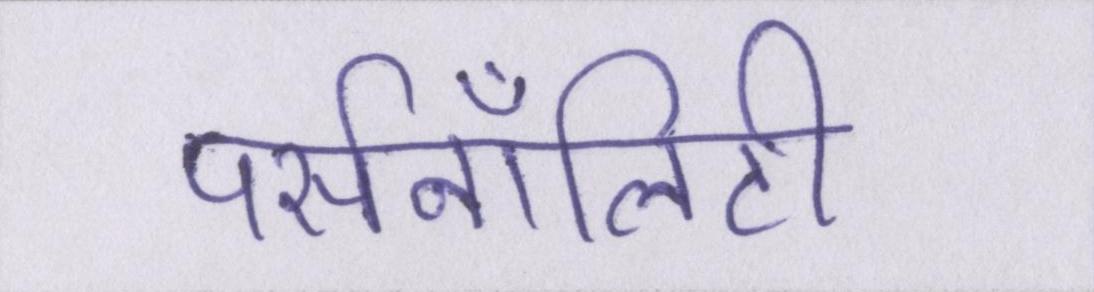 पर्सनॉलिटी